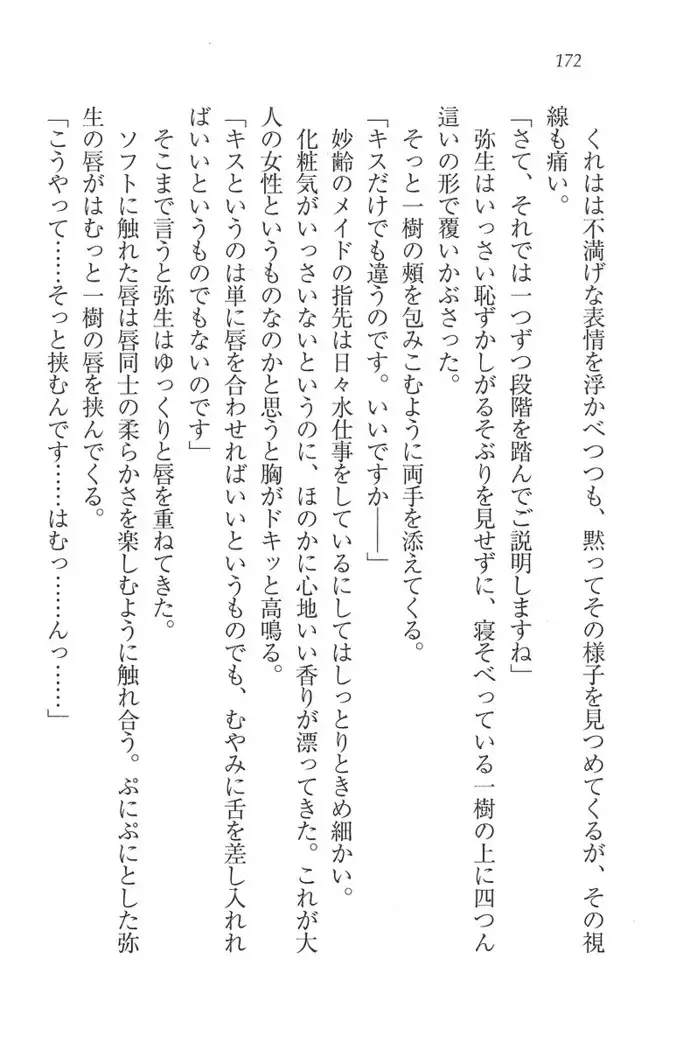 172
くれはは不満げな表情を浮かべつつも、黙ってその様子を見つめてくるが、その視
線も痛い。
「さて、それでは一つずつ段階を踏んでご説明しますね」
弥生はいっさい恥ずかしがるそぶりを見せずに、寝そべっている一樹の上に四つん
這いの形で覆いかぶさった。
そっと一樹の頬を包みこむように両手を添えてくる。
「キスだけでも違うのです。いいですか――」
妙齢のメイドの指先は日々水仕事をしているにしてはしっとりときめ細かい。
化粧気がいっさいないというのに、ほのかに心地いい香りが漂ってきた。これが大
人の女性というものなのかと思うと胸がドキッと高鳴る。
「キスというのは単に唇を合わせればいいというものでも、むやみに舌を差し入れれ
ばいいというものでもないのです」
そこまで言うと弥生はゆっくりと唇を重ねてきた。
ソフトに触れた唇は唇同士の柔らかさを楽しむように触れ合う。ぷにぷにとした弥
生の唇がはむっと一樹の唇を挟んでくる。
「こうやって……そっと挟むんです……はむっ……んっ……」